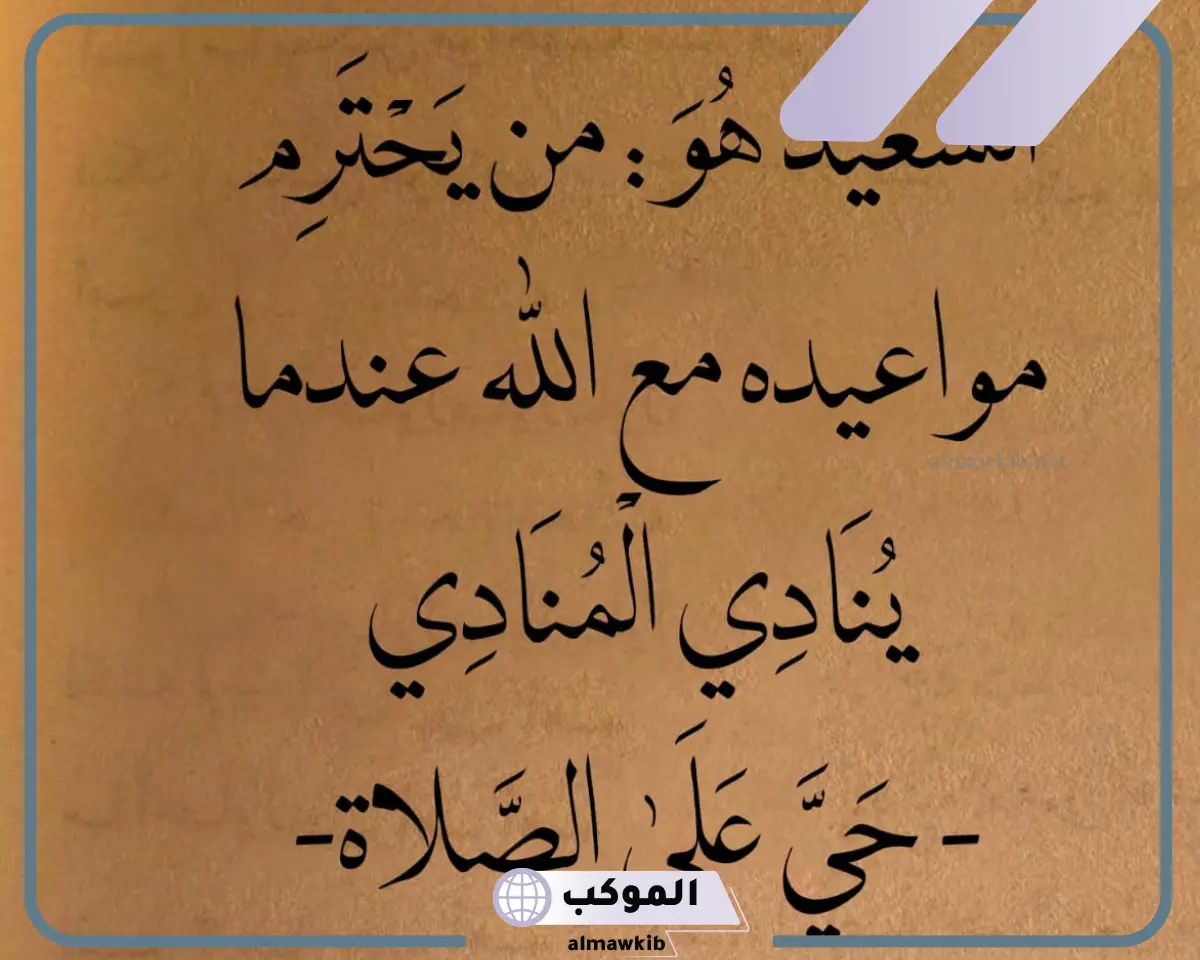 السعيد هُوَ : من يَحْتَرِم
مواعيده مع الله عندما
almawkib.net
يُنَادِي الْمُنَادِي
- حَيَّ عَلَى الصَّلاة-
الموكب
almawkib